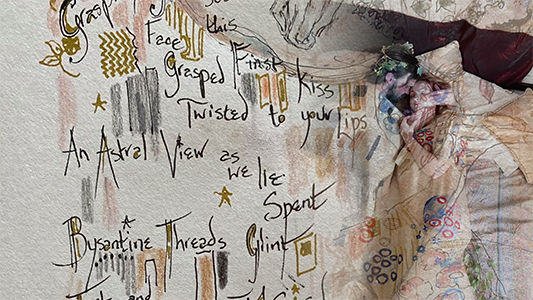 this
Face
Grasped First Kiss
Twisted to your Lips
An Astral View as
we lie
Spent
Bysantine Threads Glint